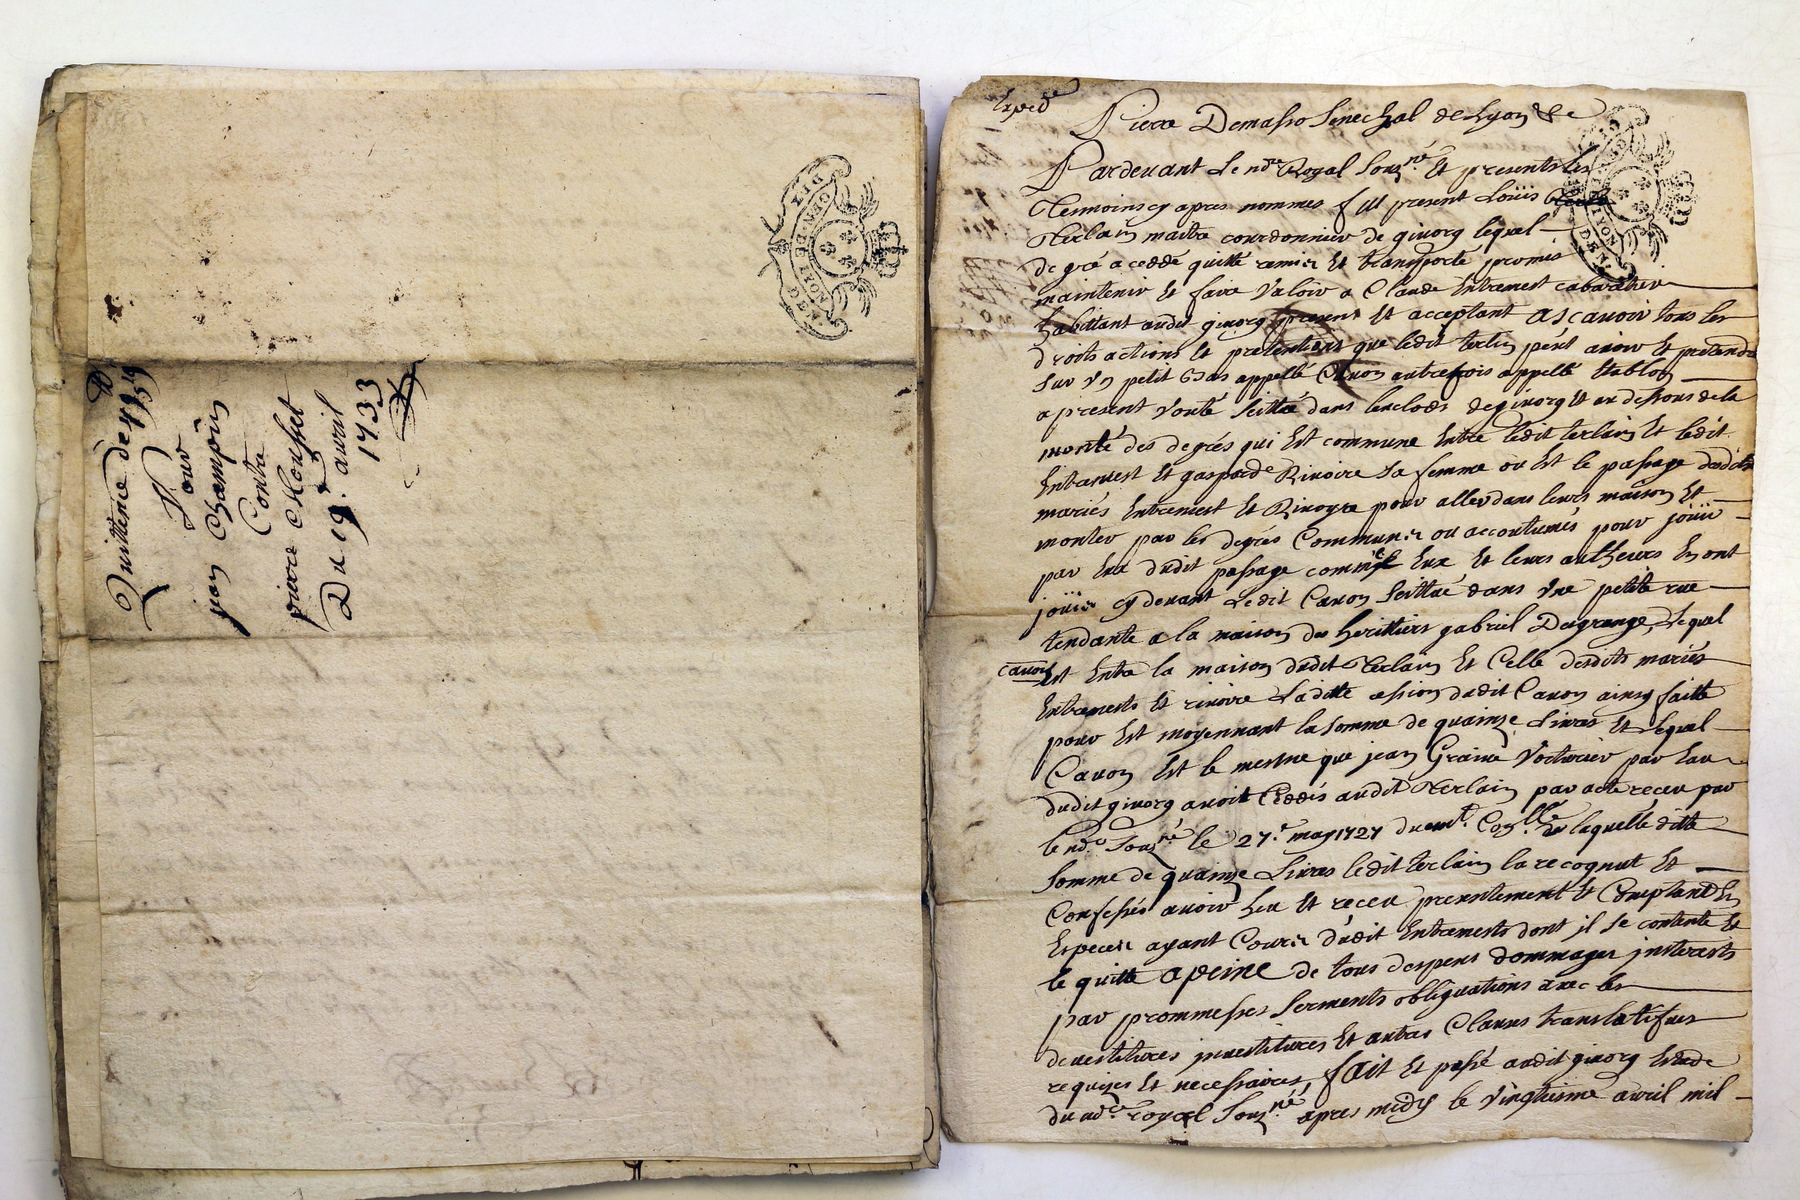 Quittence de
Pour
jean Champin
Contre
pierre
Du 19e avril
1733
GEN. DE
LION
DEN.
DIX
Exped
Pierre Demasso Senechal de Lyon &c
Pardevant Le nore Royal Souzné Et presents les
Temoins cy apres nommes fut present Loüis
Terlain maitre courdonnier de givorg lequel
de gré a ceddé quitté remis Et transporté promis
maintenir Et faire Valoir a Claude Entremest cabaretier
habittant audit givorg present Et acceptant ascavoir tous les
droits actions Et pretentions que ledit terlin peut avoir Et pretendre
sur Vn petit Bas appellé Cavon autrefois appellé Establon
a present Vouté scittué dans lenclos de givorg Et au dessous de la
monté des degrés qui Est commune Entre ledit terlain Et ledit
Entremest Et gasparde Rivoire sa femme ou Est le passage desdits
mariés Entremest Et Rivoyre pour aller dans leurs maison Et
monter par les degrés Communs ou accoutumés pour joüir
par Eux dudit passage comme Eux Et leurs autheurs En ont
joüis cy devant Ledit Cavon scittué dans Vne petite rue
tendante a la maison des heritiers gabriel Degrange, Lequel
cavon Est Entre la maison dudit Terlain Et Celle desdits mariés
Entremests Et rivoire Ladite cession dudit Cavon ainsy faitte
pour Et moyennant la somme de quainze Livres Et Lequel
Cavon Est le mesme que jean Graine Voiturier par Eau
dudit givorg avoit Ceddés audit Terlain par acte receu par
le nore Souzné le 27e may 1727 duemt Conllé laquelle ditte
somme de quainze Livres ledit terlain la recognut Et
Confessés avoir heu Et receu presentement Et Comptant En
Especes ayant Cours dudit Entremests dont il se contente Et
le quitte apeine de tous despens dommages interests
par prommesses serments obligations avec les
devestitures investitures Et autres Clauses translatifves
requizes Et necessaires, fait Et passé audit givorg Estude
du nore royal Souzné apres midy le Vingtiesme avril mil